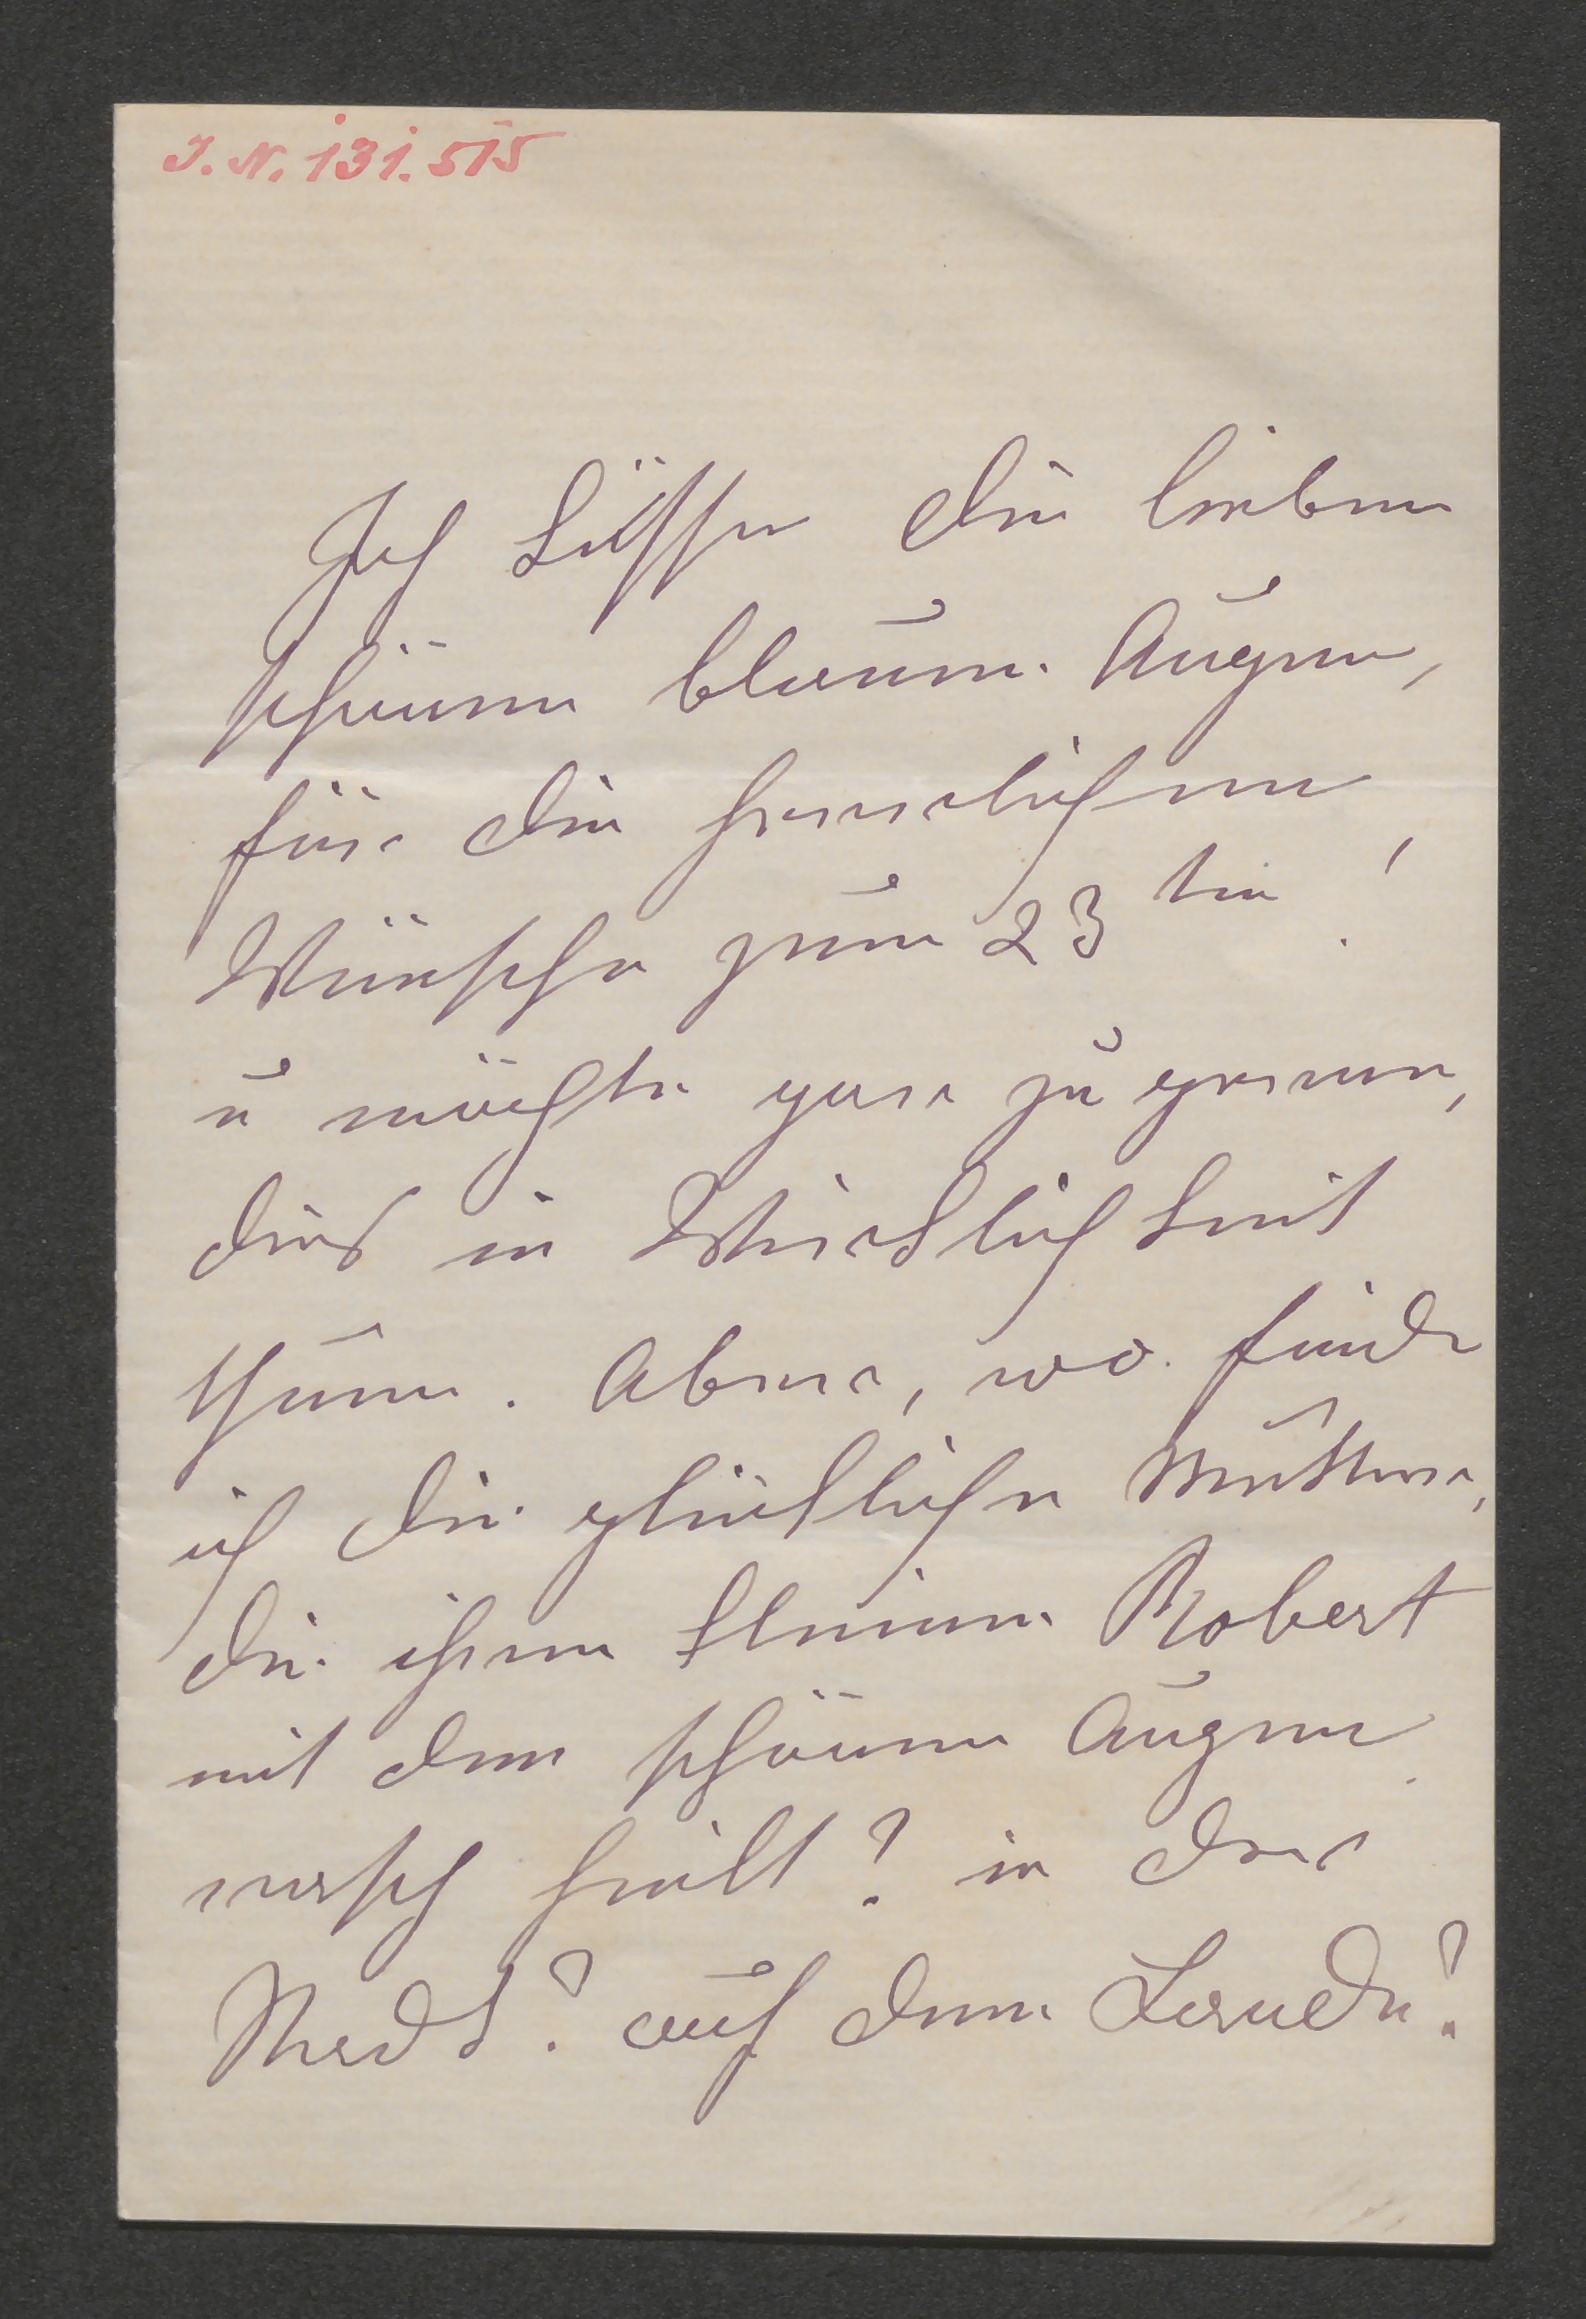 I. N. 131.515
Ich küsse die lieben
schönen blauen Augen,
für die herrlichen
Wünsche zum 23ten!
u möchte gar zu gerne,
dies in Wirklichkeit
thuen. Aber, wo finde
ich die glückliche Mutter,
die ihren kleinen Robert
mit den schönen Augen
rasch heilt? in der
Stadt? auf dem Lande?